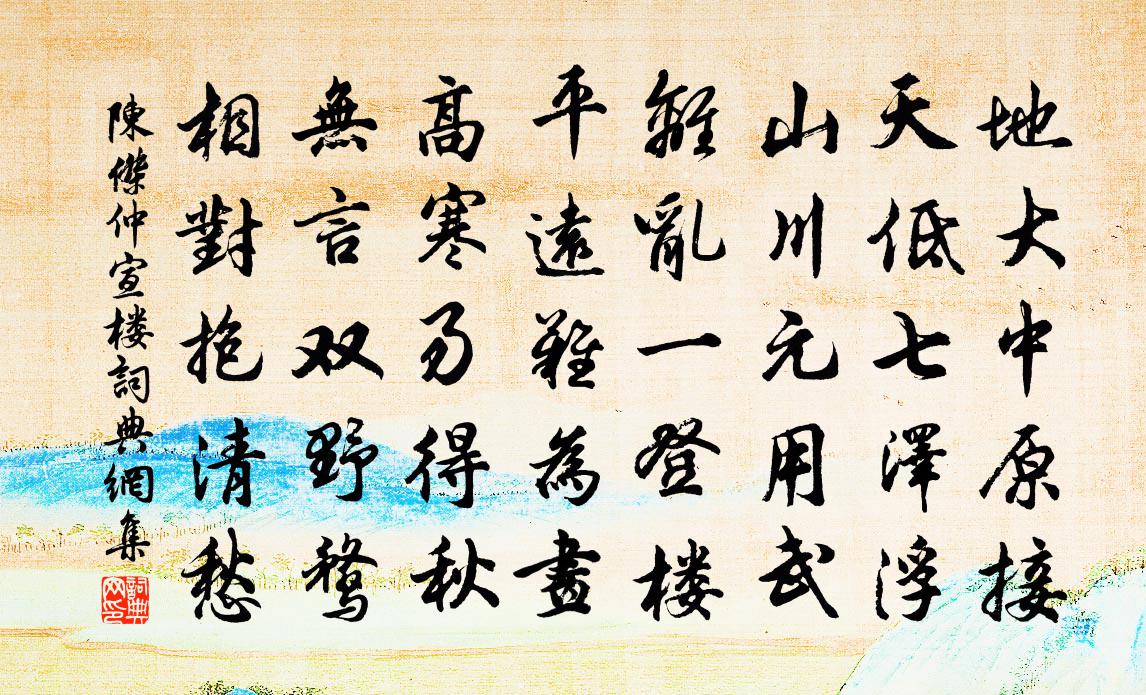 地大中原接
天低七澤浮
山川元用武
離亂一登樓
平遠難為畫
高寒易得秋
無言双野鶩
相對抱清愁
陳傑仲宣楼詞典網集
詞典网印